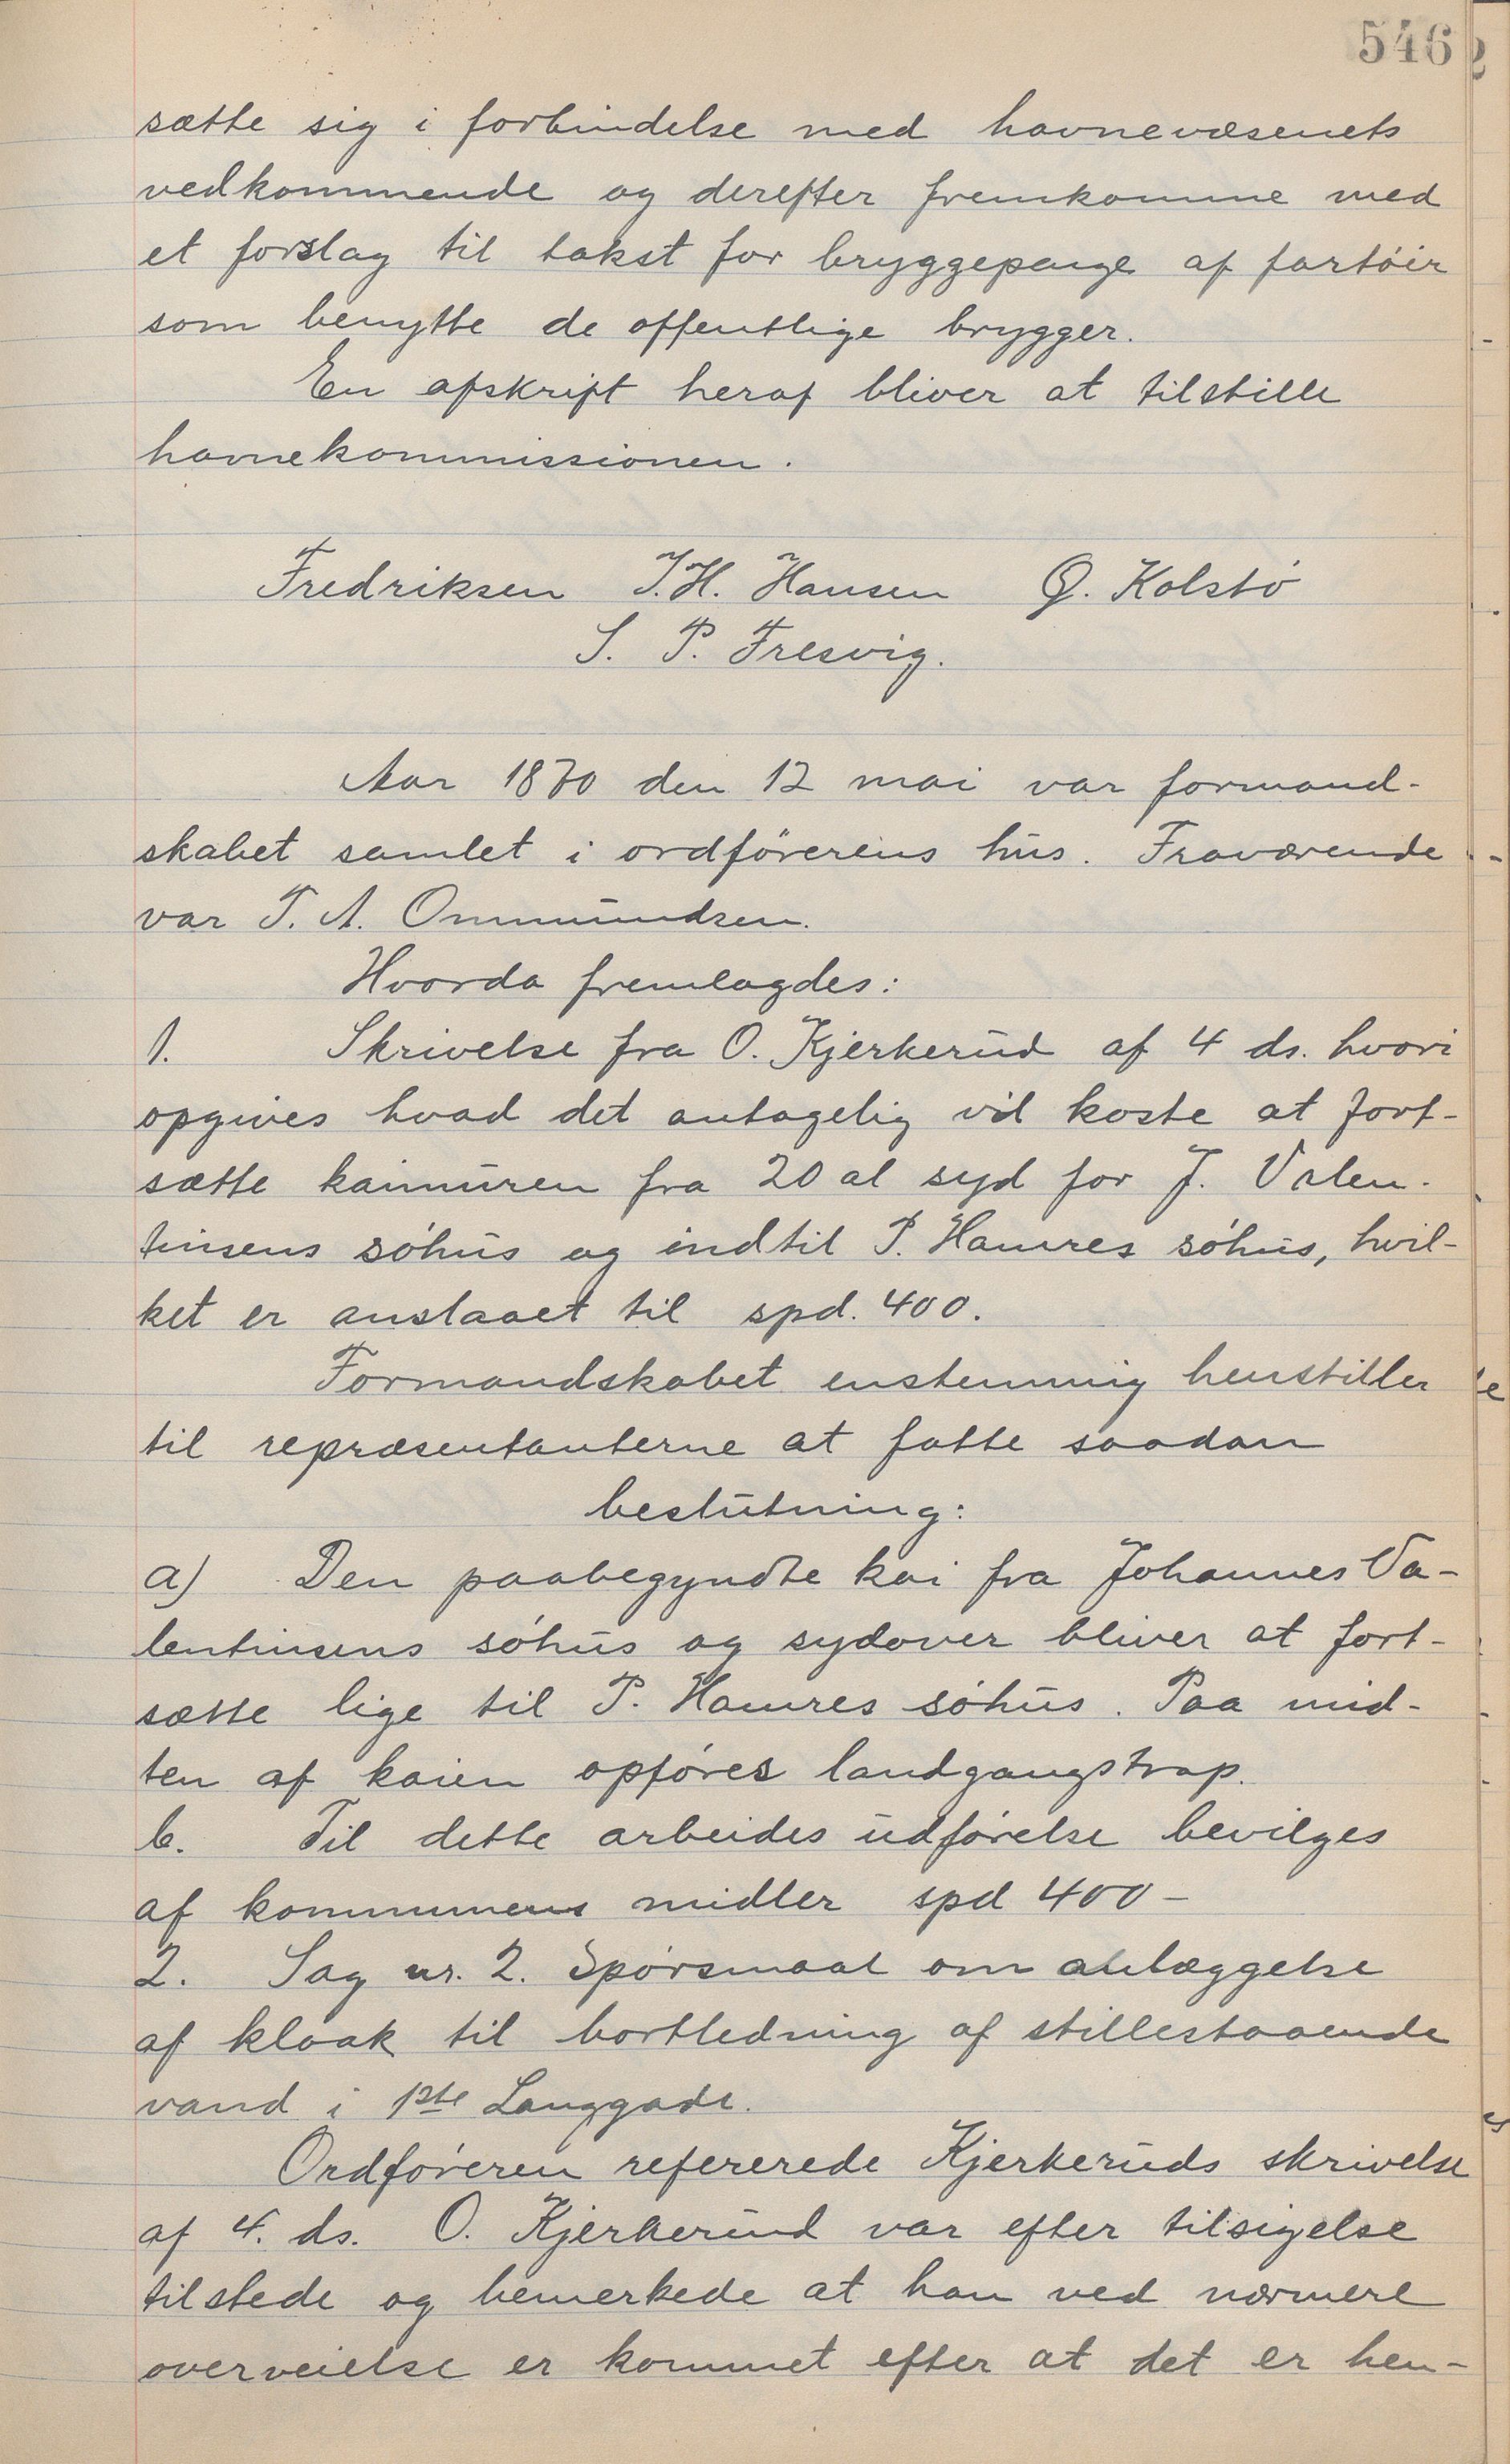 546
sætte sig i forbindelse med havnevæsenets
vedkommende og derefter fremkomme med
et forslag til takst for bryggepenge af fartöir
som benytte de offentlige brygger.
En afskrift heraf bliver at tilstille
havnekommissionen.
Fredriksen J.H. Hansen Q. Kolstö
S. P. Fresvig.
Aar 1870 den 12 mai var formand-
skabet samlet i ordförerens hus. Fraværende
var T. A. Ommundsen.
Hvorda fremlagdes:
1. Skrivelse fra O. Kjerkerud af 4 ds. hvori
opgives hvad det antagelig vil koste at fort-
sætte kaimuren fra 20 al syd for J. Valen-
tinsens söhus og indtil P. Hamres söhus, hvil-
ket er anslaaet til spd. 400.
Formandskabet enstemmig henstiller
til repræsentanterne at fatte saadan
beslutning:
a) Den paabegyndte kai fra Johannes Va-
lentinsens söhus og sydover bliver at fort-
sætte lige til P. Hamres söhus. Paa mid-
ten af kaien opföres landgangstrap.
b. Til dette arbeides udförelse bevilges
af kommunens midler spd 400-
2. Sag nr. 2. Spörsmaal om anlæggelse
af kloak til bortledning af stillestaaende
vand i 1ste Langgade.
Ordföreren refererede Kjerkeruds skrivelse
af 4. ds. O. Kjerkerud var efter tilsigelse
tilstede og bemerkede at han ved nærmere
overveielse er kommet efter at det er hen-